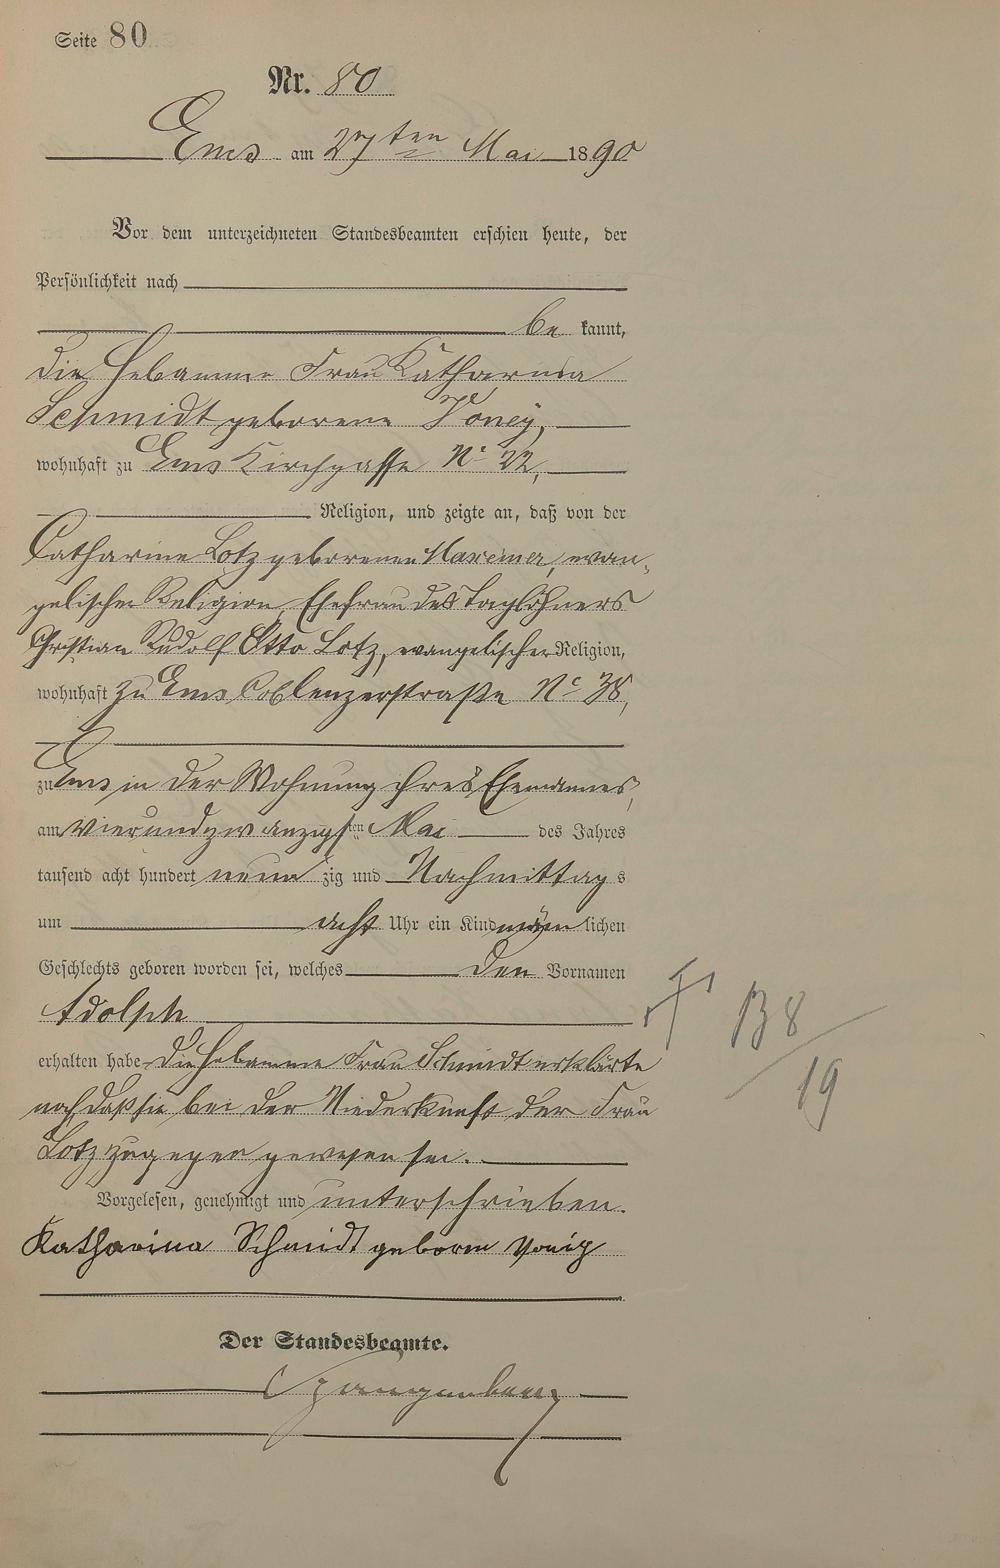 Seite 80
Nr. 80
Ems am 27ten Mai 1890
Vor dem unterzeichneten Standesbeamten erschien heute, der
Persönlichkeit nach
be kannt,
die Hebamme Frau Katharina
Schmidt geborene
wohnhaft zu Ems Kirchgasse No 22,
Religion, und zeigte an, daß von der
Catharine Lotz geborenen Maxeiner, evan-
gelischer Religion, Ehefrau des Taglöhners
Christian Rudolf Otto Lotz, evangelischer Religion,
wohnhaft zu Ems Coblenzerstraße No 38,
zu Ems in der Wohnung ihres Ehemannes,
am vierundzwanzigsten Mai des Jahres
tausend acht hundert neun zig und Nachmittags
um acht Uhr ein Kind männlichen
Geschlechts geboren worden sei, welches den Vornamen
Adolph
erhalten habe die Hebamme Frau Schmidt erklärte
noch, daß sie bei der Niederkunft der Frau
Lotz zugegen gewesen sei.
Vorgelesen, genehmigt und unterschrieben.
Katharina Schmidt geborne
Der Standesbeamte.
B 8
19